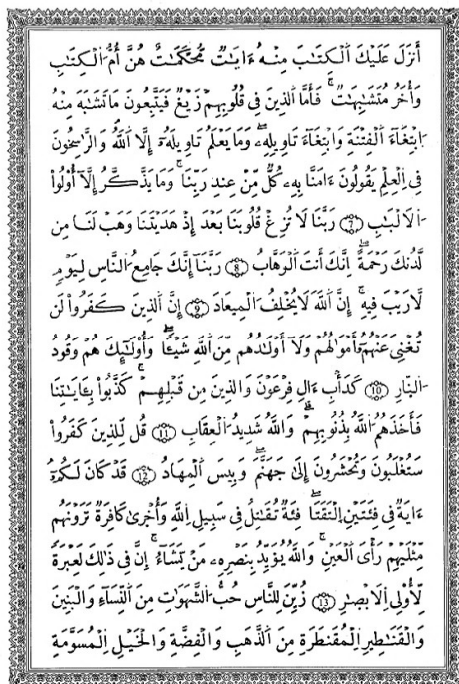 أَنزَلَ عَلَيْكَ اَ۬لْكِتَٰبَ مِنْهُ ءَايَٰتٞ مُّحْكَمَٰتٌ هُنَّ أُمُّ اُ۬لْكِتَٰبِ
وَأُخَرُ مُتَشَٰبِهَٰتٞۖ فَأَمَّا اَ۬لذِينَ فِے قُلُوبِهِمْ زَيْغٞ فَيَتَّبِعُونَ مَا تَشَٰبَهَ مِنْهُ
اُ۪بْتِغَآءَ اَ۬لْفِتْنَةِ وَابْتِغَآءَ تَاوِيلِهِۦۖ وَمَا يَعْلَمُ تَاوِيلَهُۥٓ إِلَّا اَ۬للَّهُۖ وَالرَّٰسِخُونَ
فِے اِ۬لْعِلْمِ يَقُولُونَ ءَامَنَّا بِهِۦ كُلّٞ مِّنْ عِندِ رَبِّنَاۖ وَمَا يَذَّكَّرُ إِلَّآ أُوْلُواْ
اُ۬لَالْبَٰبِ ۝7 رَبَّنَا لَا تُزِغْ قُلُوبَنَا بَعْدَ إِذْ هَدَيْتَنَا وَهَبْ لَنَا مِن
لَّدُنكَ رَحْمَةًۖ اِنَّكَ أَنتَ اَ۬لْوَهَّابُ ۝8 رَبَّنَآ إِنَّكَ جَامِعُ اُ۬لنَّاسِ لِيَوْمٖ
لَّا رَيْبَ فِيهِۖ إِنَّ اَ۬للَّهَ لَا يُخْلِفُ اُ۬لْمِيعَادَ ۝9 إِنَّ اَ۬لذِينَ كَفَرُواْ لَن
تُغْنِيَ عَنْهُمُۥٓ أَمْوَٰلُهُمْ وَلَآ أَوْلَٰدُهُم مِّنَ اَ۬للَّهِ شَيْـٔاٗۖ وَأُوْلَٰٓئِكَ هُمْ وَقُودُ
اُ۬لنّ۪ارِ ۝10 كَدَأْبِ ءَالِ فِرْعَوْنَ وَالذِينَ مِن قَبْلِهِمْۖ كَذَّبُواْ بِـَٔايَٰتِنَا
فَأَخَذَهُمُ اُ۬للَّهُ بِذُنُوبِهِمْۖ وَاللَّهُ شَدِيدُ اُ۬لْعِقَابِ ۝11 قُل لِّلذِينَ كَفَرُواْ
سَتُغْلَبُونَ وَتُحْشَرُونَ إِلَىٰ جَهَنَّمَۖ وَبِيسَ اَ۬لْمِهَادُ ۝12 قَدْ كَانَ لَكُمُۥٓ
ءَايَةٞ فِے فِئَتَيْنِ اِ۪لْتَقَتَاۖ فِئَةٞ تُقَٰتِلُ فِے سَبِيلِ اِ۬للَّهِ وَأُخْر۪ىٰ كَافِرَةٞ تَرَوْنَهُم
مِّثْلَيْهِمْ رَأْيَ اَ۬لْعَيْنِۖ وَاللَّهُ يُؤَيِّدُ بِنَصْرِهِۦ مَنْ يَّشَآءُۖ انَّ فِے ذَٰلِكَ لَعِبْرَةٗ
لُّأُوْلِے اِ۬لَابْصٰ۪رِ ۝13 زُيِّنَ لِلنَّاسِ حُبُّ اُ۬لشَّهَوَٰتِ مِنَ اَ۬لنِّسَآءِ وَالْبَنِينَ
وَالْقَنَٰطِيرِ اِ۬لْمُقَنطَرَةِ مِنَ اَ۬لذَّهَبِ وَالْفِضَّةِ وَالْخَيْلِ اِ۬لْمُسَوَّمَةِ